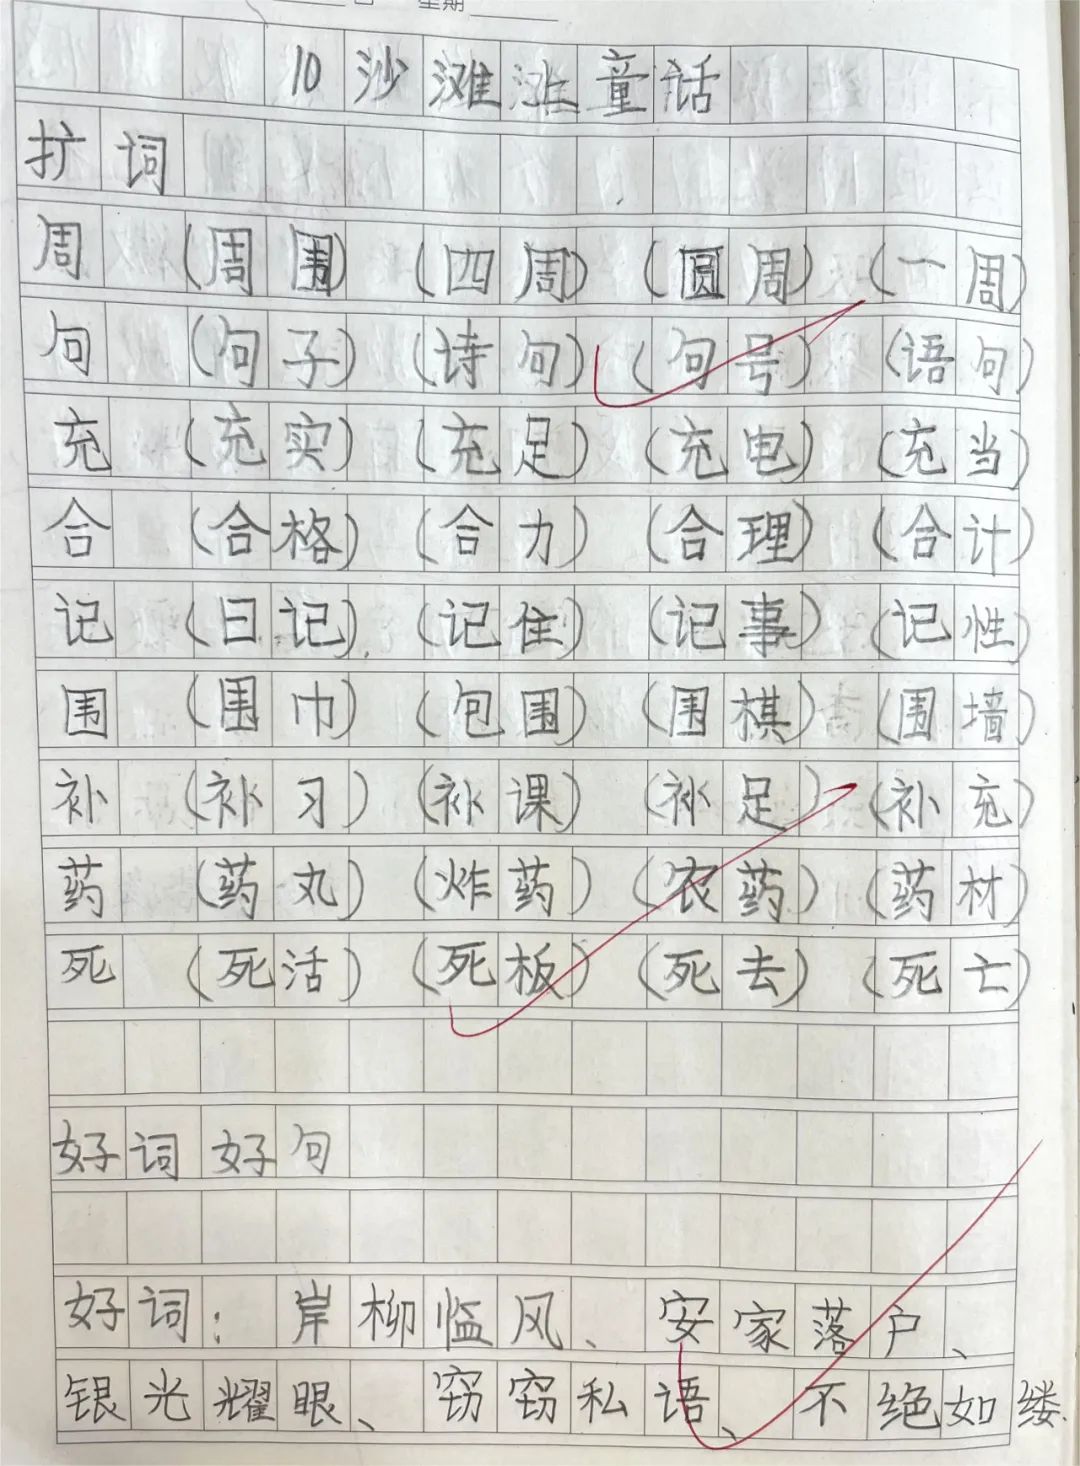 星期
10沙滩上童话
扩词
周 (周围) (四周) (圆周) (一周)
句 (句子) (诗句) (句号) (语句)
充 (充实) (充足) (充电) (充当)
合 (合格) (合力) (合理) (合计)
记 (日记) (记住) (记事) (记性)
围 (围巾) (包围) (围棋) (围墙)
补 (补习) (补课) (补足) (补充)
药 (药丸) (炸药) (农药) (药材)
死 (死活) (死板) (死去) (死亡)
好词好句
好词：岸柳临风、安家落户、
银光耀眼、窃窃私语、不绝如缕.